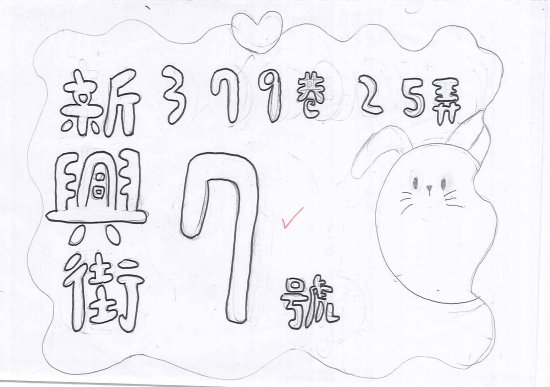 新興街
379巷25弄
7號